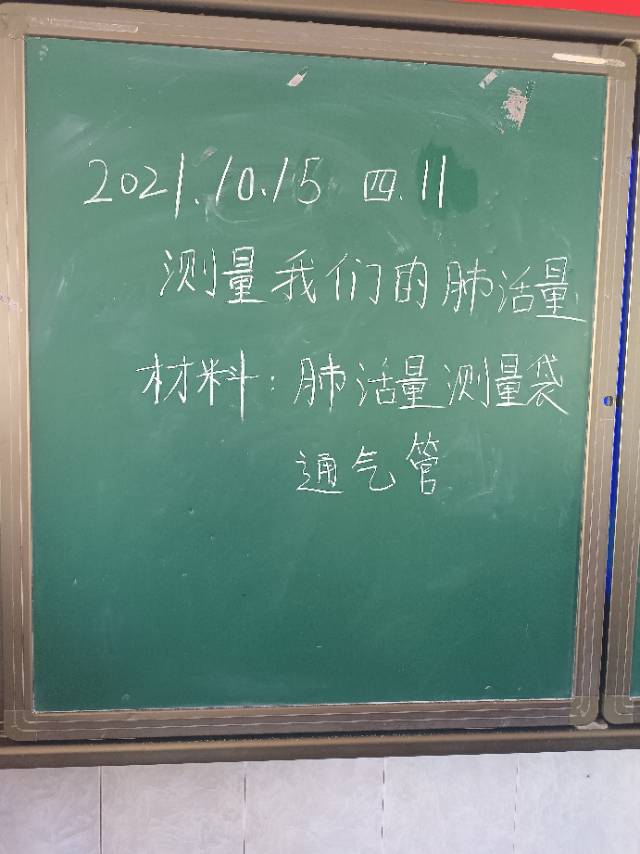 2021.10.15 四.11
测量我们的肺活量
材料：肺活量测量袋
通气管